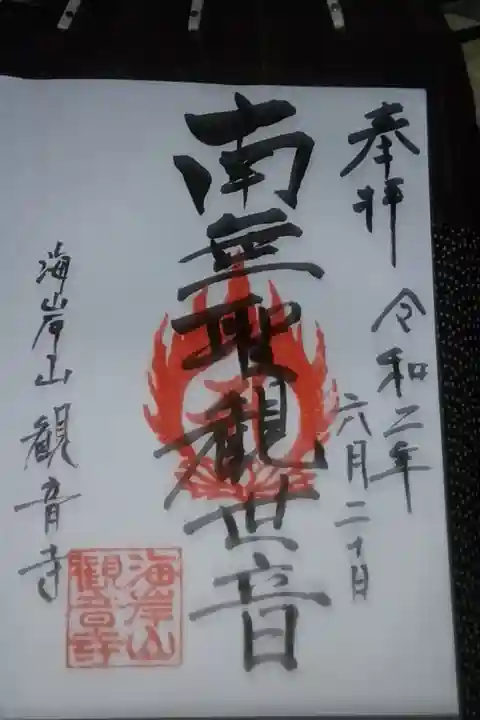 奉拝
令和二年
六月二十日
南無聖観世音
海岸山観音寺
海岸山
観音寺